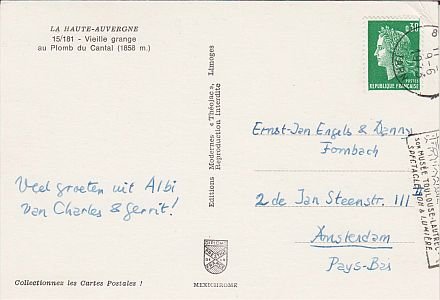 LA HAUTE-AUVERGNE
15/181 - Vieille grange
au Plomb du Cantal (1858 m.)
Veel groeten uit Albi
van Charles & Gerrit!
Collectionnez les Cartes Postales !
Editions Modernes « Théojac », Limoges
Reproduction interdite
MEXICHROME
0,30
POSTES
REPUBLIQUE FRANÇAISE
Ernst-Jan Engels & Danny
Fornbach
2de Jan Steenstr. 111
Amsterdam
Pays-Bas
SON MUSÉE TOULOUSE-LAUTREC
SPECTACLE SON & LUMIÈRE